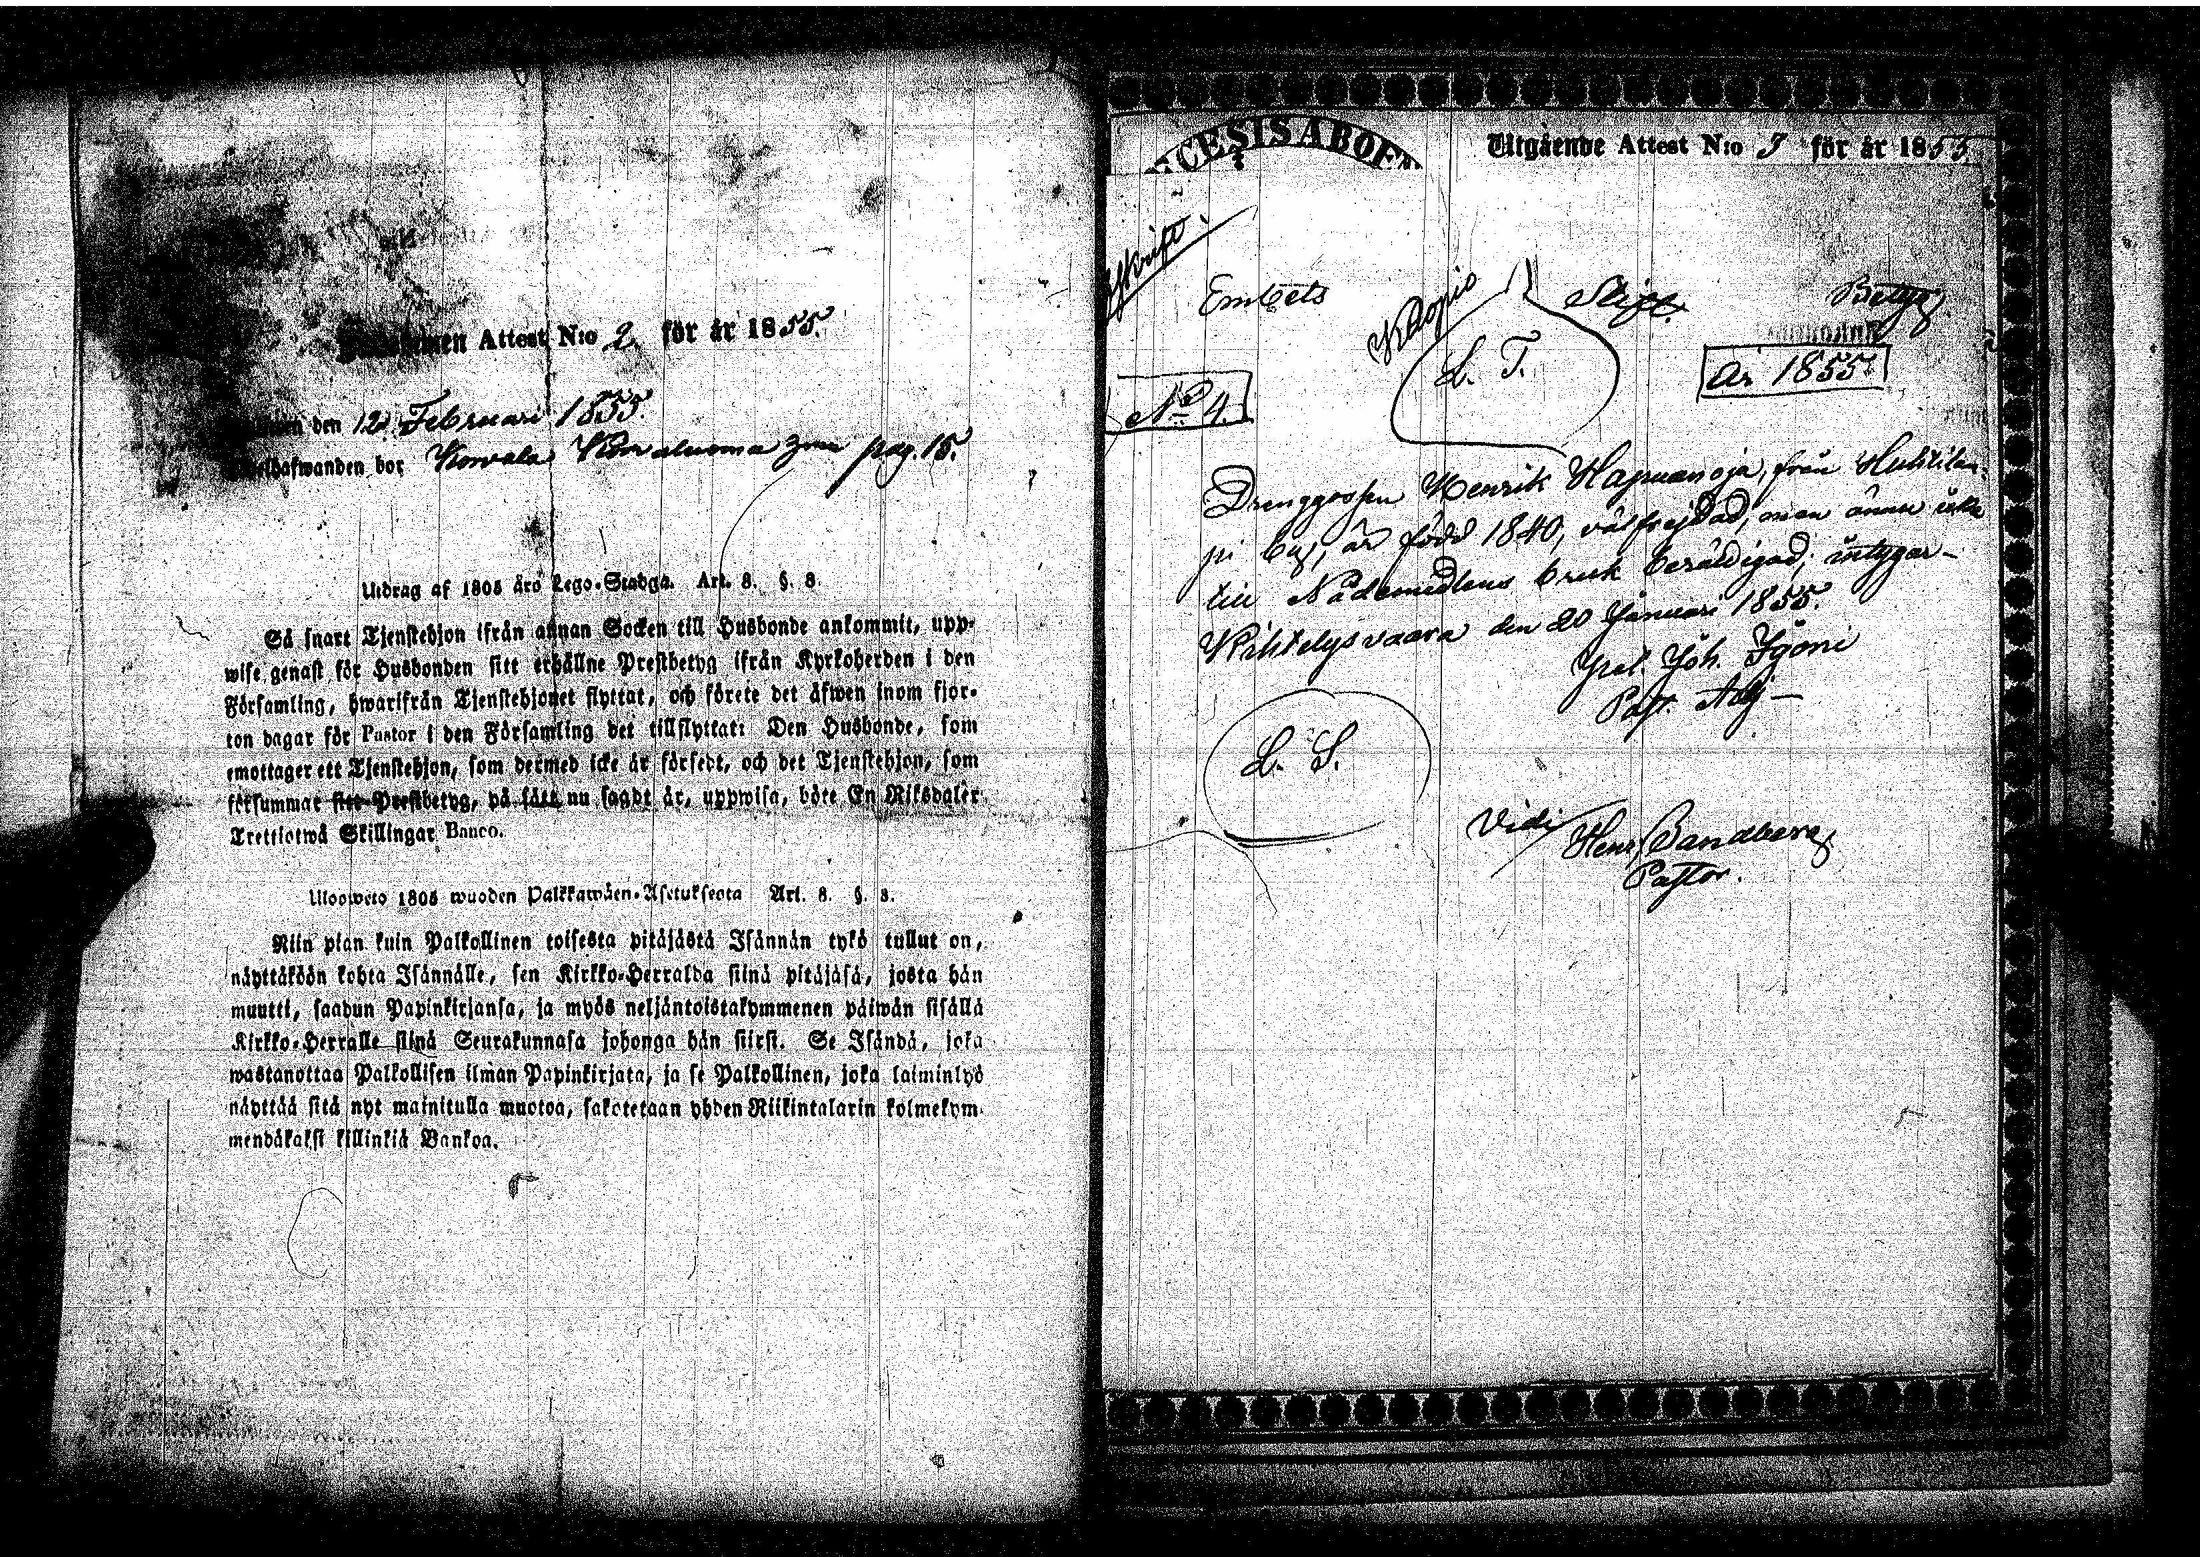 Attest N:o 2. för år 1855.
den 12 Februari 1855.
bor Korvala Korvaluoma pag. 15.
Utdrag af 1805 års Lego-Stadga. Art. 8. §. 8.
Så snart Tjenstehjon ifrån annan Socken till Husbonde ankommit, upp-
wise genast för Husbonden sitt erhållne Prestbetyg ifrån Kyrkoherden i den
Församling, hwarifrån Tjenstehjonet flyttat, och förete det äfwen inom fjor-
ton dagar för Pastor i den Församling det tillflyttat: Den Husbonde, som
emottager ett Tjenstehjon, som dermed icke är försedt, och det Tjenstehjon, som
försummar sitt Prestbetyg, på sätt nu sagdt är, uppwisa, böte En Riksdaler
Trettiotwå Skillingar Banco.
Uloosweto 1805 wuoden Palkkawäen-Asetuksesta Art. 8. §. 8.
Niin pian kuin Palkollinen toisesta pitäjästä Isännän tykö tullut on,
näyttäköön kohta Isännälle, sen Kirkko-Herralda siinä pitäjäsä, josta hän
muutti, saadun Papinkirjansa, ja myös neljäntoistakymmenen päiwän sisällä
Kirkko-Herralle siinä Seurakunnasa johonga hän siirsi. Se Isändä, joka
wastanottaa Palkollisen ilman Papinkirjata, ja se Palkollinen, joka laiminlyö
näyttää sitä nyt mainitulla muotoa, sakotetaan yhden Riikintalarin kolmekym-
mendäkaksi killinkiä Bankoa.
CESIS ABOEN
Utgående Attest N:o 3 för år 1855.
skrift.
Embets
Kuopio
Stift.
Betyg
N:o 4.
L. T.
År 1855
Drenggossen Henrik Hapuanoja, från Huhtilam-
pi by, är född 1840, välfrejdad, men ännu icke
till Nådemedlens bruk berättigad, intygar—
Kihtelysvaara den 20 Januari 1855.
Joh.
Past. Adj—
L. S.
Vidi
Henr. Bandberg
Pastor.